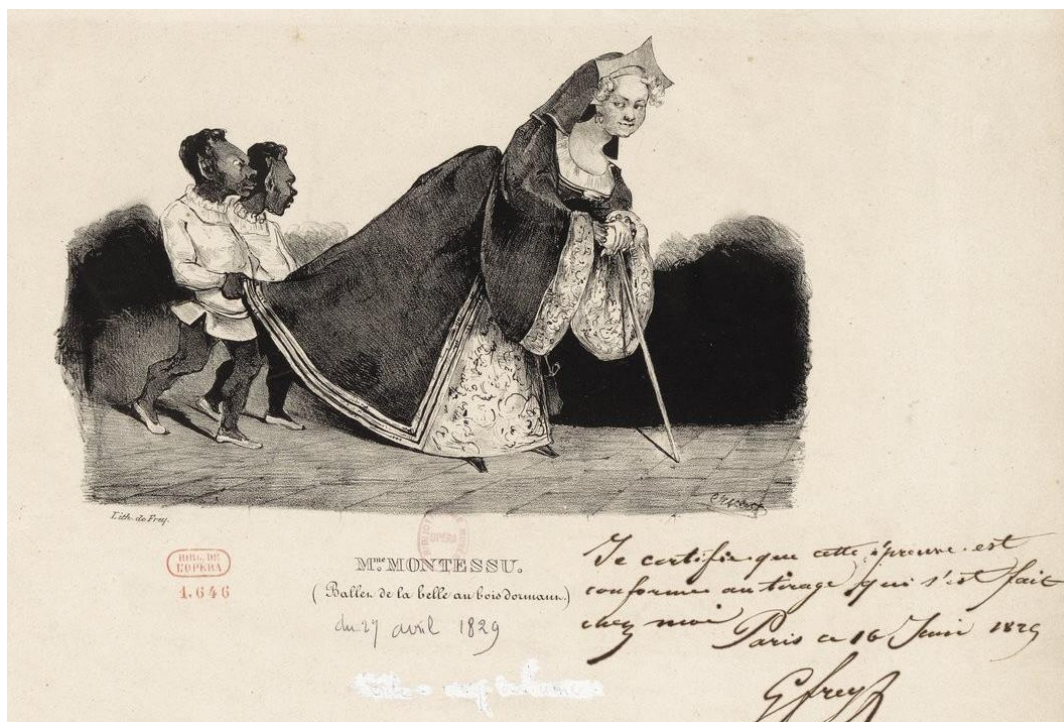 Lith. de Frey.
BIBL. DE
L'OPÉRA
1.646
OPERA
Mme MONTESSU.
(Ballet de la belle au bois dormant.)
du 27 avril 1829
Je certifie que cette épreuve est
conforme au tirage qui s'est fait
chez moi
Paris ce 16 Juin 1829
G frey